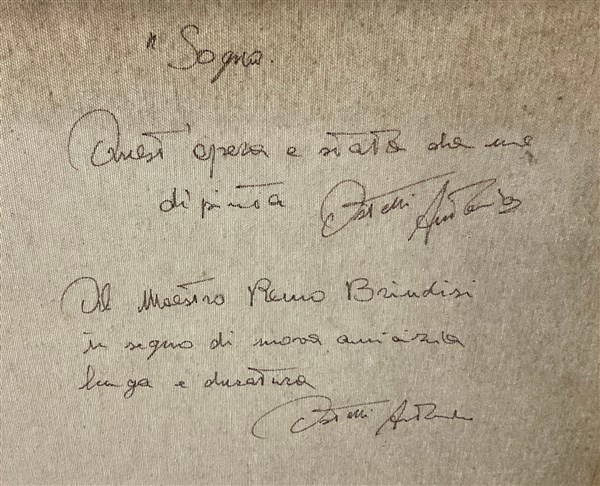 "Sogno.
Quest'opera e stata da me
dipinta Castelli Antonio
Al Maestro Remo Brindisi
in segno di nuova amicizia
lunga e duratura
Castelli Antonio